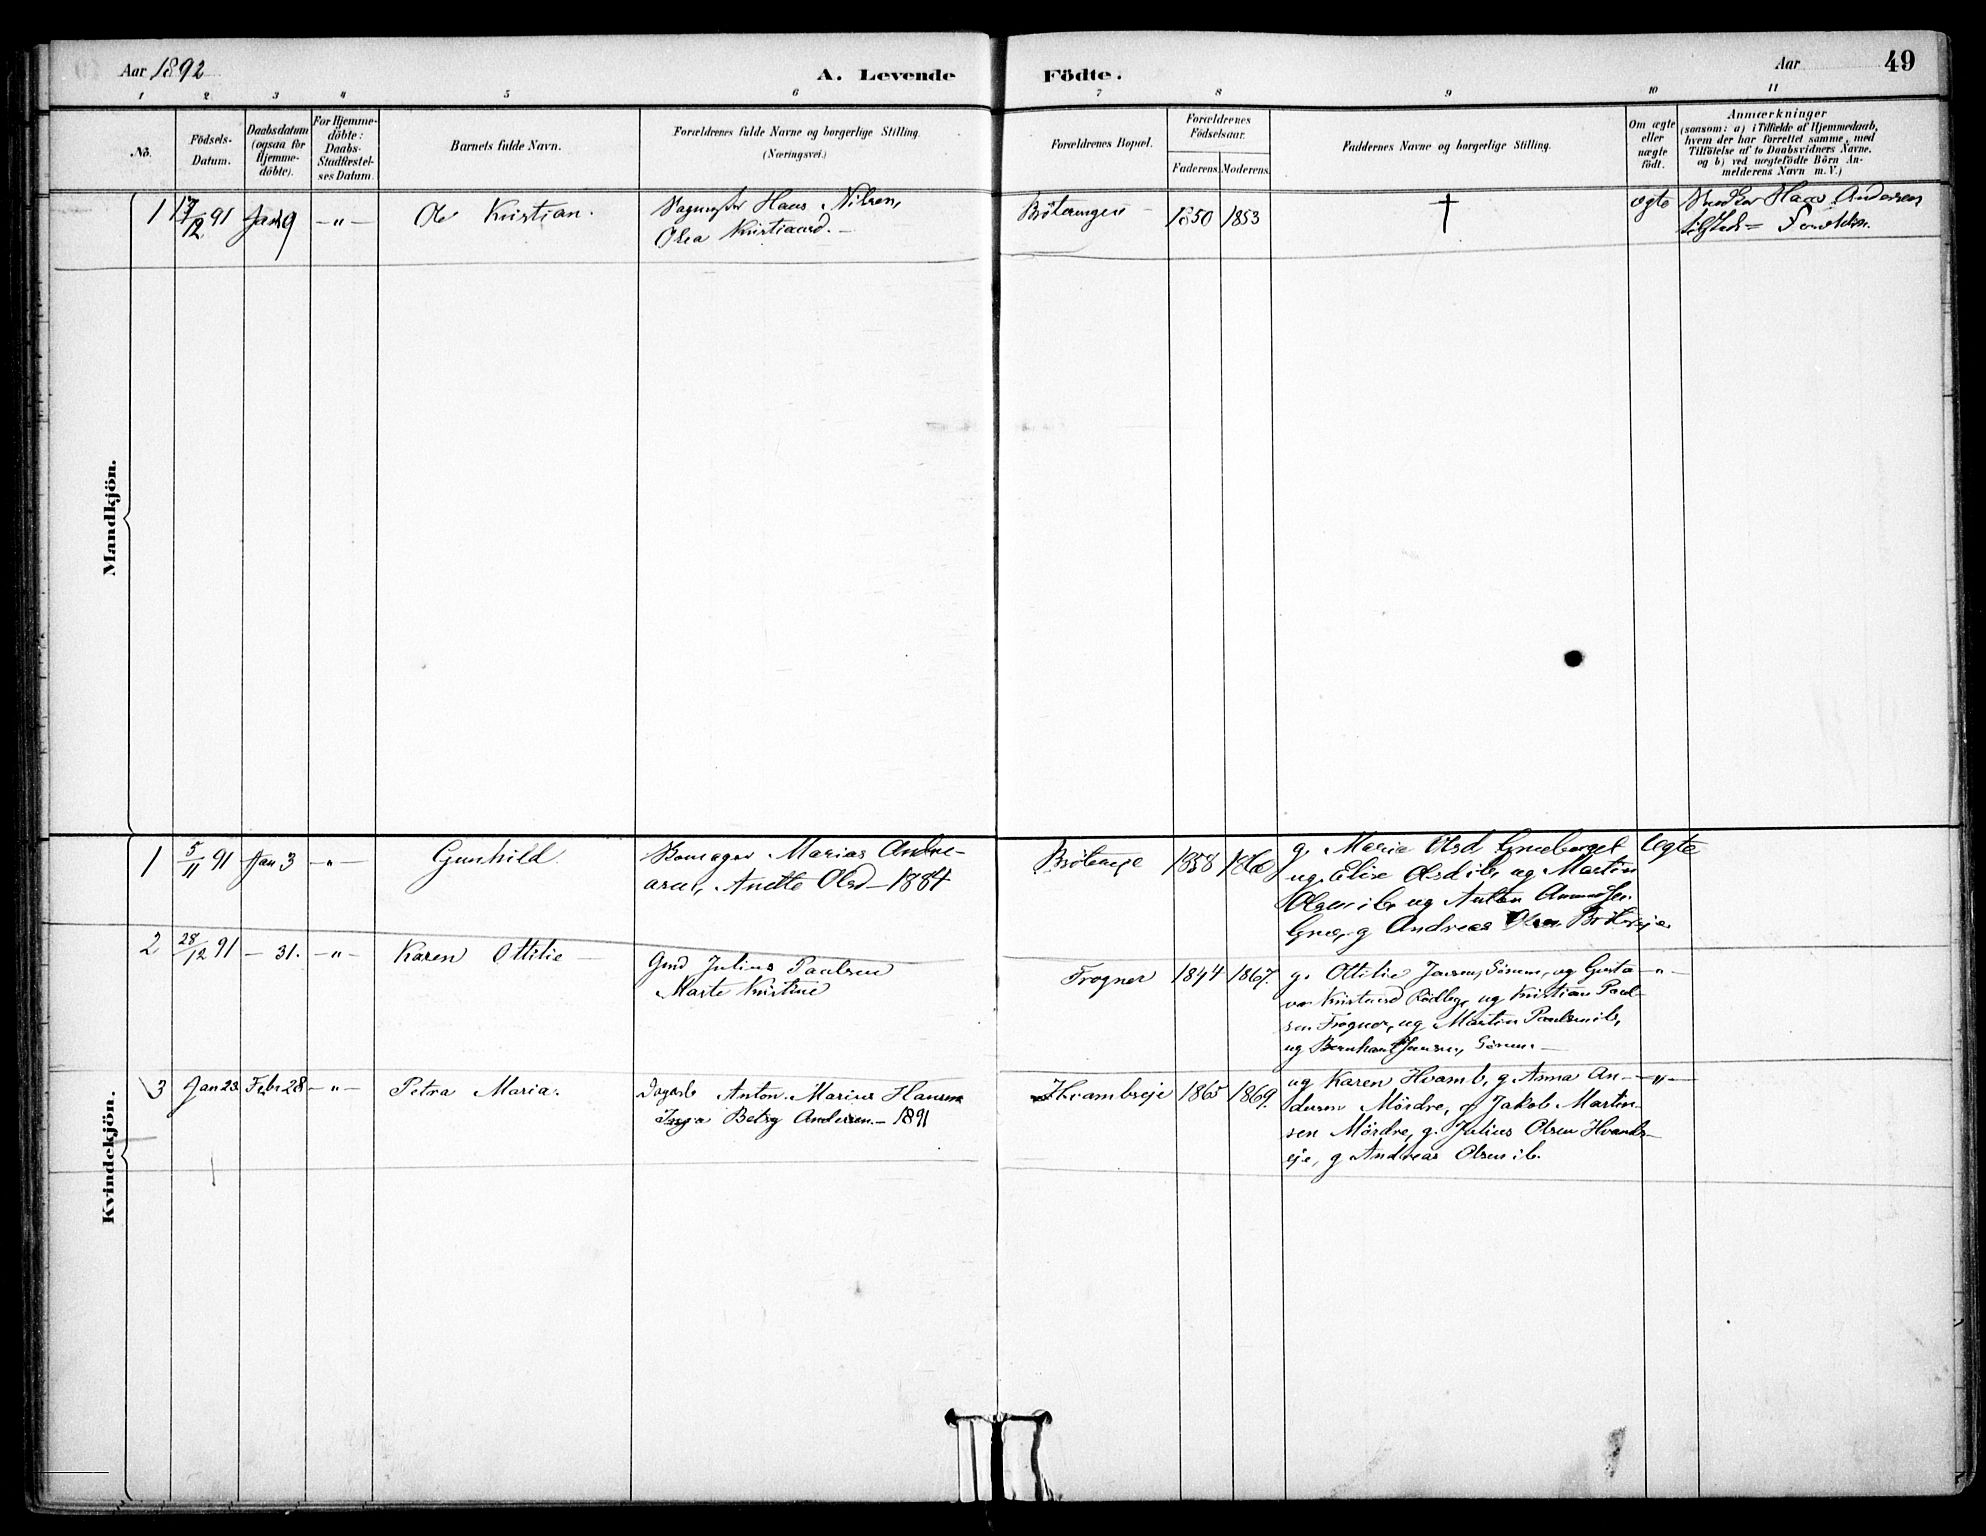 Aar 1892
A. Levende
Födte.
Aar
49
1
2
3
4
5
6
7
8
9
10
11
No.
Födsels-
Datum.
Daabsdatum
(ogsaa for
Hjemme-
döbte).
For Hjemme-
döbte:
Daabs-
Stadfæstel-
ses Datum.
Barnets fulde Navn.
Forældrenes fulde Navne og borgerlige Stilling.
(Næringsvei.)
Forældrenes Bopæl.
Forældrenes
Födselsaar.
Faderens.
Moderens.
Faddernes Navne og borgerlige Stilling.
Om ægte
eller
uægte
födt.
Anmærkninger
(saasom: a) i Tilfælde af Hjemmedaab,
hvem der har forrettet samme, med
Tilföielse af to Daabsvidners Navne.
og b) ved uægtefödte Börn An-
melderens Navn m. V.)
Mandkjön.
1 /12 91 Jan 9 -"- Ole Kristian. Hans Nilsen,
Olea Kristiansd. -
1850 1853 † ægte Andersen
Kvindekjön.
1 5/11 91 Jan 3 -"- Gunhild. Marius Andre-
asen, Anette Olsd - 1884
1858 g. Marie Olsd ægte
ug. Elise Olsd ib, ug Martin
Olsen ib, ug Anton
g Andreas Olsen
2 28/12 91 - 31. -"- Karen Ottilie - Gmd Julius Paulsen
Marte Kristine
Frogner 1844 1867. g. Ottilie Jensen, ug Gusta- -"-
va Kristiansd ug Kristian Paul-
sen Frogner, ug Martin Paulsen ib,
ug Bernhard Jensen,
3 Jan 23 Febr 28 -"- Petra Maria. Dagarb Anton Marius Hansen
Inga Betzy Andersen. - 1891
Hvambseje 1865 1869. ug Karen Hvamb, g Anna An- -"-
dersen Mördre, g Jakob Martin-
sen Mördre, g. Julius Olsen Hvambs-
eje, g Andreas Olsen ib.